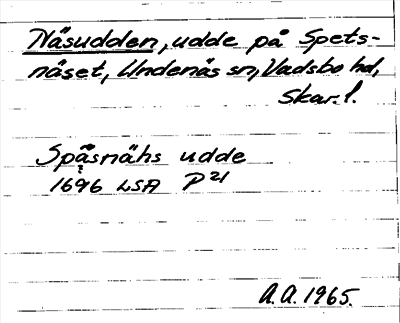 Näsudden, udde på Spets-
näset, Undenäs sn, Vadsbo hd,
Skar. l.
Spåsnähs udde
1696 LSA P21
A.A. 1965.